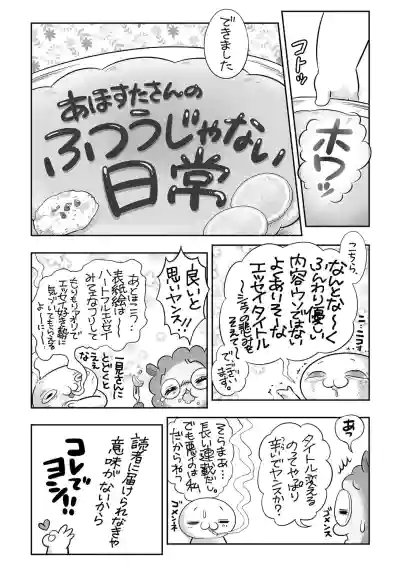 コトッ
ホワッ
できました
あほすたさんの
ふつうじゃない
日常
こちら、
なんとな〜く
ふんわり優しい
内容ウンではない
よくありそーな
エッセイタイトル
〜シェラの悲哀を
そえて〜
でございます。
ニコニコ
良いと
思いヤンス!!
あとほこう…
表紙絵は
ハートフルエッセイ
みてえなフリして
もりもりアオリで
エッセイ好き勢に
気づいてもらえる
よーにー
一見さんに
とどくと
なえぇ
あっ
タイトル変える
のってやっぱり
辛いでヤンスか?
ゴメンス
そらまあ…
長い連載だし。
でも悪いのは私
だからねっ
ゴメンネ
読者に届けられなきゃ
意味がないから
コレで
ヨシ!!